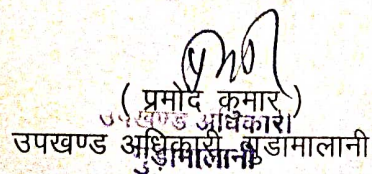 ( प्रमोद कुमार )
उपखण्ड अधिकारी
उपखण्ड अधिकारी, गुडामालानी
गुड़ामालानी